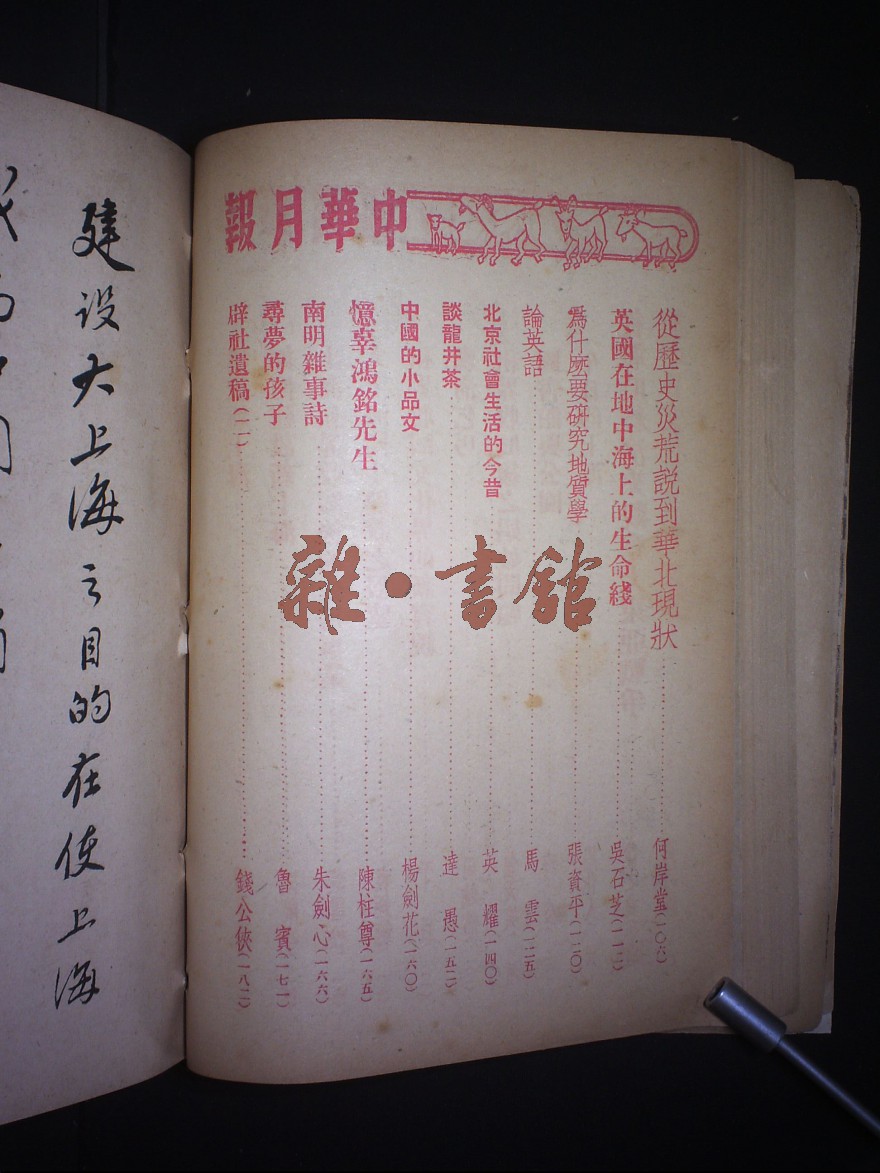 中華月報
從歷史災荒説到華北現狀 何岸堂(一〇六)
英國在地中海上的生命綫 吳石芝(一一二)
爲什麽要研究地質學 張資平(一二〇)
論英語 馬雲(一二五)
北京社會生活的今昔 英耀(一四〇)
談龍井茶 達愚(一五二)
中國的小品文 楊劍花(一六〇)
憶辜鴻銘先生 陳柱尊(一六五)
南明雜事詩 朱劍心(一六六)
尋夢的孩子 魯賓(一七一)
辟社遺稿(二) 錢公俠(一八二)
雜·書館
建设大上海之目的在使上海